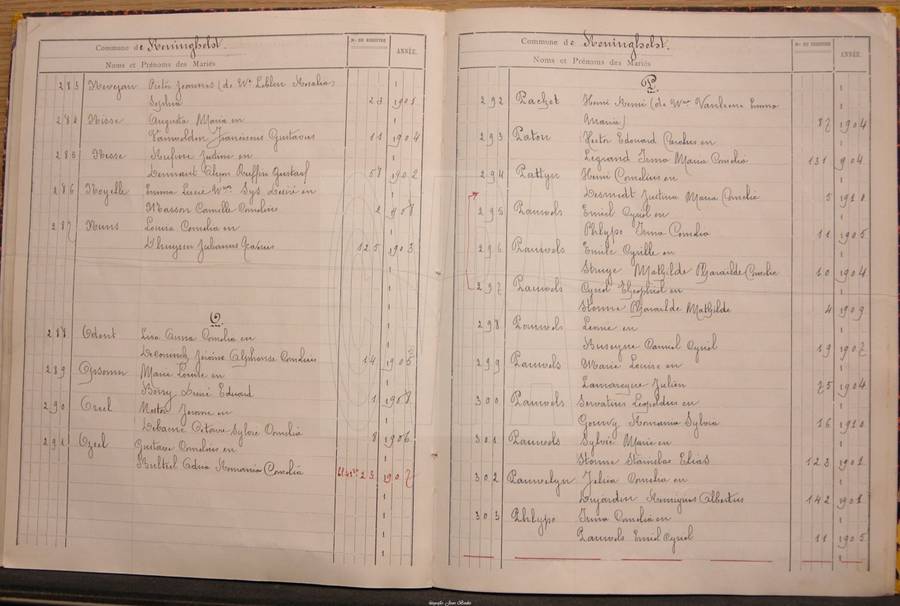 Commune de Reninghelst.
Noms et Prénoms des Mariés
Nos DU REGISTRE
ANNÉE.
283 Nevejan Pieter Joannes (de We Leblon Rosalia
Sophia 23 1901
284 Nisse Augusta Maria en
Franciscus Gustavus 11 1904
285 Nisse Rufine Justine en
Gustaaf 58 1902
286 Noyelle Emma Lucie Wwe Sys Désiré en
Masson Camille Cornelius 2 1908
287 Nuns Louisa Cornelia en
D'huysser Julianus Xavier 125 1903
O
288 Odent Lisa Anna Cornelia en
Deconinck Jérôme Alphonse Cornelius 14 1905
289 Opsomer Marie Louise en
Borry Désiré Eduard 1 1908
290 Oreel Nestor Jerome en
Octavie Sylvie Cornelia 8 1906
291 Ozeel Gustave Cornelius en
Bultiel Adna Romania Cornelia 23 1907
Commune de Reninghelst.
Noms et Prénoms des Mariés
Nos DU REGISTRE
ANNÉE.
P.
292 Pachet Henri Remi (de Wwe Emma
Maria) 87 1904
293 Paton Hector Edouard Carolus en
Legrand Irma Maria Cornelia 131 1904
294 Pattyn Henri Cornelius en
Desmedt Justina Maria Cornelia 5 1910
295 Pauwels Emiel Cyriel en
Phlypo Irma Cornelia 11 1905
296 Pauwels Emile Cyrille en
Struye Mathilde Pharaïlde Cornelia 10 1904
297 Pauwels Cyriel Theophiel en
Storme Pharaïlde Mathilde 4 1909
298 Pauwels Leonie en
Buseyne Camiel Cyriel 19 1907
299 Pauwels Marie Louise en
Lamareque Julien 75 1904
300 Pauwels Servatius Leopoldus en
Gouwy Romania Sylvia 16 1910
301 Pauwels Sylvie Marie en
Storme Stanislas Elias 123 1901
302 Pauwelyn Julia Cornelia en
Dujardin Remigius Albertus 142 1901
303 Phlypo Irma Cornelia en
Pauwels Emiel Cyriel 11 1905